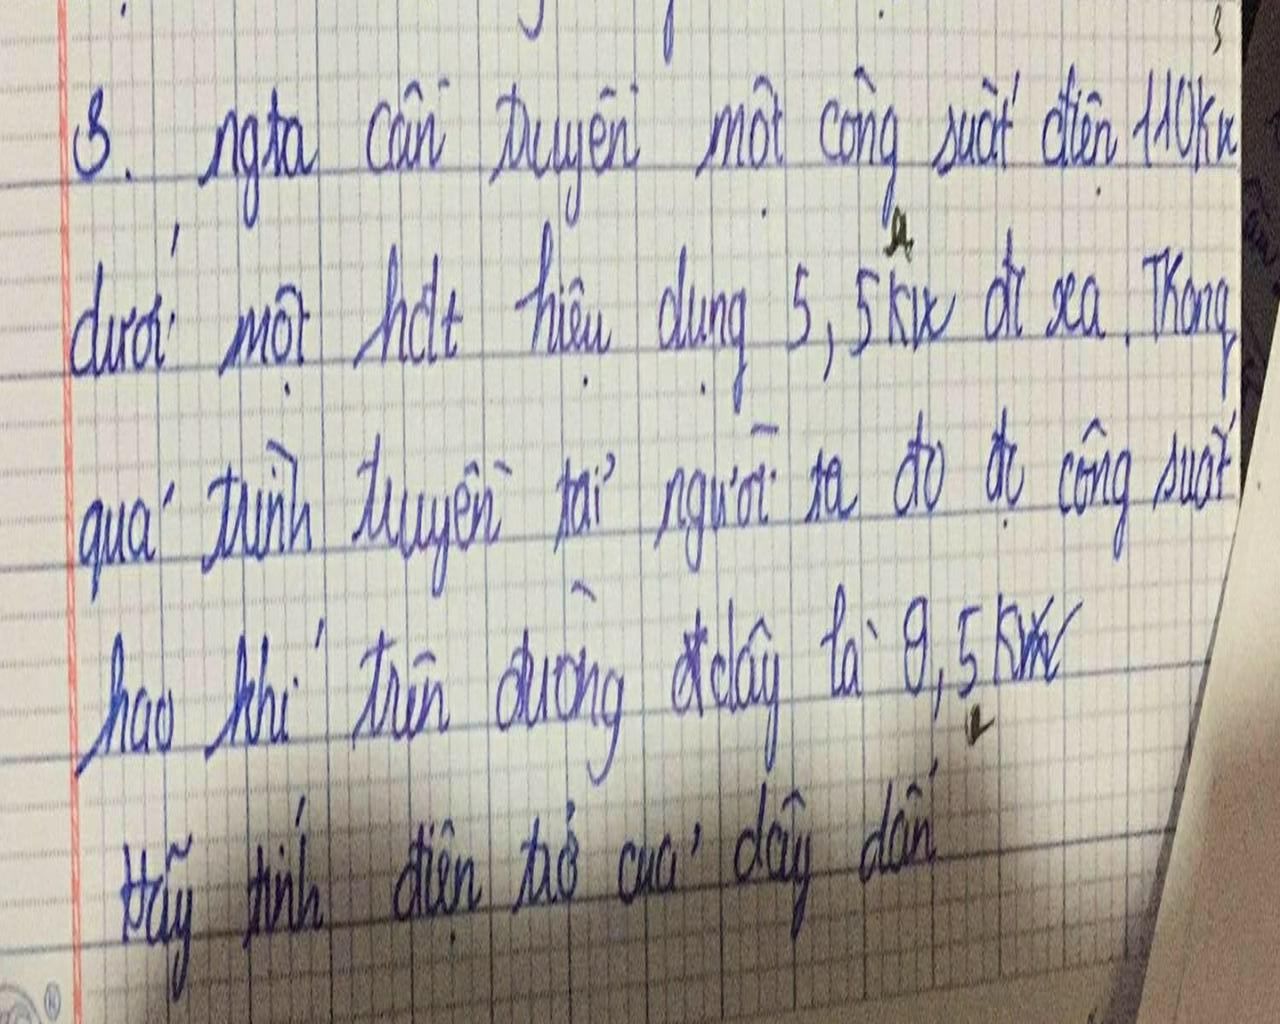 3. ngta cần truyền một công suất điện 110Kw
dưới một hđt hiệu dụng 5,5Kw đi xa. Trong
quá trình truyền tải người ta đo đc công suất
hao khí trên đường dây là 9,5Kw
Hãy tính điện trở của dây dẫn